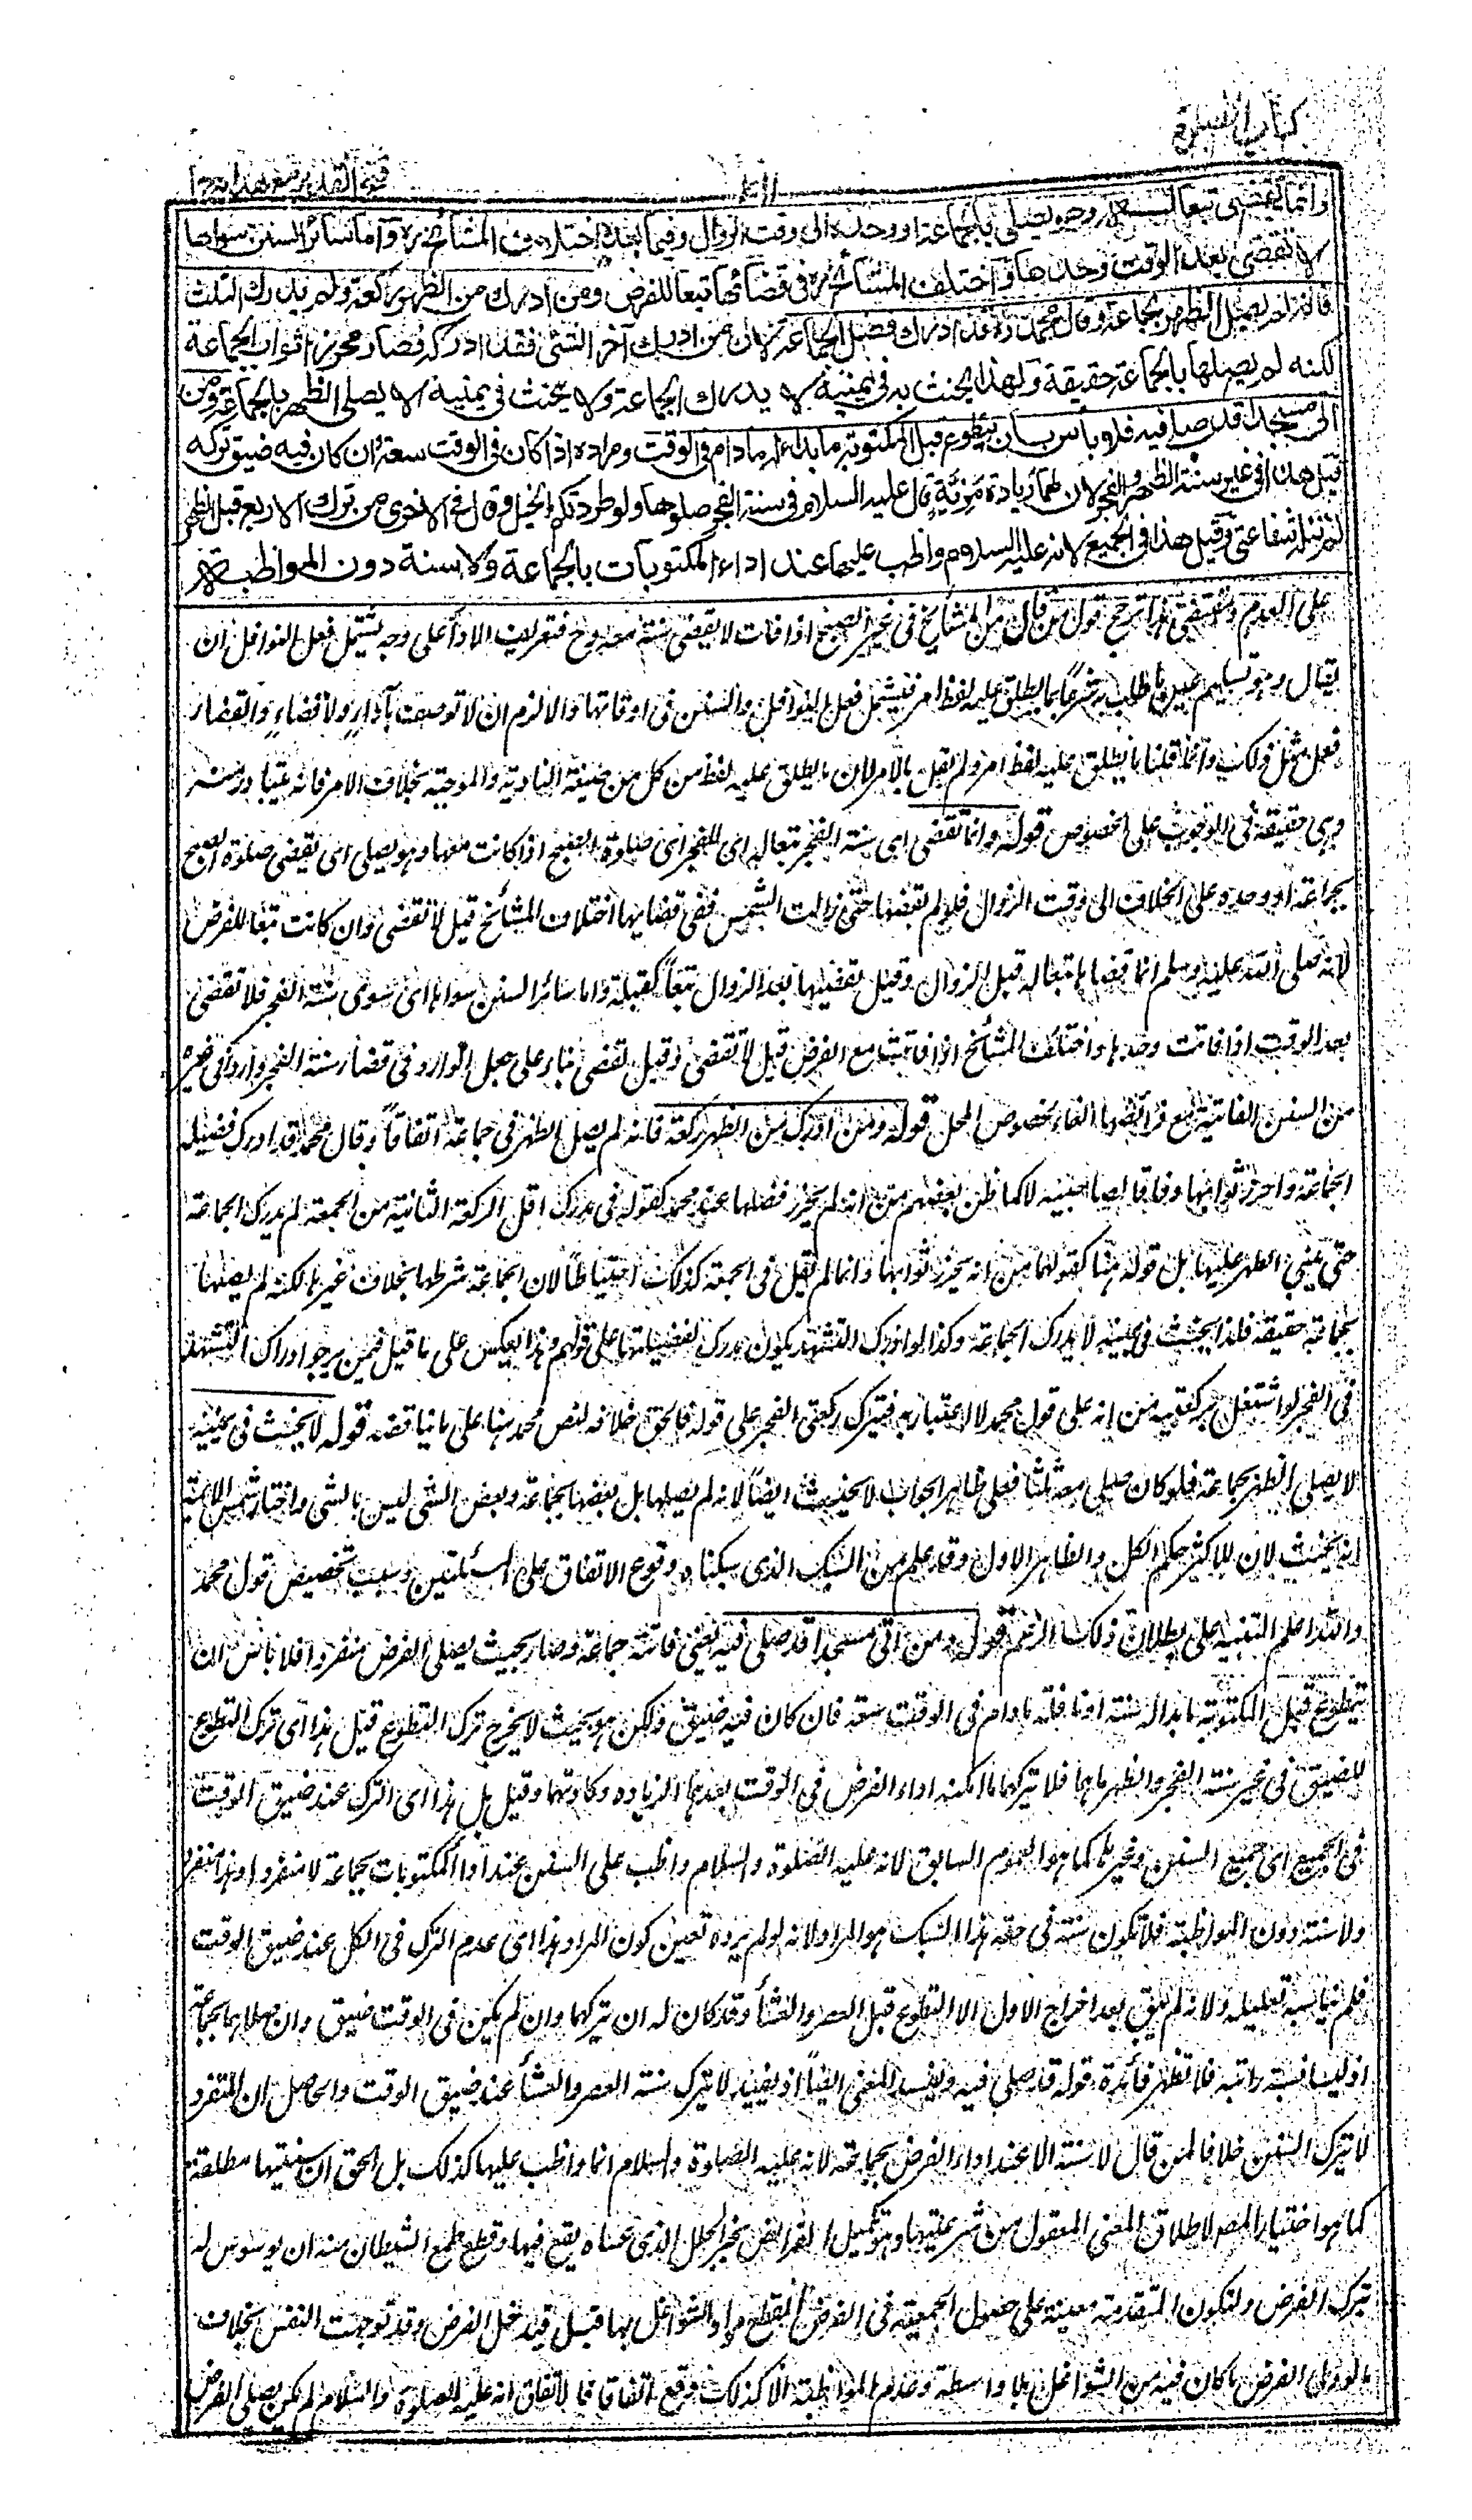 كتاب الصلوة
فتح القدير مع هداية ج ١
وانما تقضى تبعا له وهو يصلى بالجماعة او وحده الى وقت الزوال وفيما بعده اختلاف المشائخ رح وأما سائر السنن سواها
لا تقضى بعد الوقت وحدها واختلف المشائخ رح فى قضائها تبعا للفرض ومن ادرك من الظهر ركعة ولم يدرك الثلث
فانه لم يصل الظهر بجماعة وقال محمد رح قد ادرك فضل الجماعة لان من ادرك آخر الشئ فقد ادركه فصار محرزا ثواب الجماعة
لكنه لم يصلها بالجماعة حقيقة ولهذا يحنث به فى يمينه لا يدرك الجماعة ولا يحنث فى يمينه لا يصلى الظهر بالجماعة ومن
اتى مسجدا قد صلى فيه فلا بأس بان يتطوع قبل المكتوبة ما بدا له ما دام فى الوقت ومراده اذا كان فى الوقت سعة وان كان فيه ضيق تركه
قيل هذا فى غير سنة الظهر والفجر لان لهما زيادة مزية قال عليه السلام فى سنة الفجر صلوها ولو طردتكم الخيل وقال فى الاخرى من ترك الاربع قبل الظهر
لم تنله شفاعتى وقيل هذا فى الجميع لانه عليه السلام واظب عليها عند اداء المكتوبات بالجماعة ولا سنة دون المواظبة
على العدم ومقتضى هذا ترجح قول من قال من المشايخ فى غير الصبح اذا فات لا يقضى سنته معه وح فتعريف الاداء على وجه يشتمل فعل النوافل ان
يقال وهو تسليم عين ما طلب به شرعا بما يطلق عليه لفظ امر فيشمل فعل النوافل والسنن فى اوقاتها والا لزم ان لا توصف بأداء ولا قضاء والقضاء
فعل مثل ذلك وانما قلنا ما يطلق عليه لفظ امر ولم نقل بالامر لان ما يطلق عليه لفظ من كل من صيغة النادبة والموجبة بخلاف الامر فانه يتبادر منه
وهى حقيقة فى الوجوب على الخصوص قوله وانما تقضى اى سنة الفجر تبعا له اى للفجر اى صلوة الصبح اذا كانت معها وهو يصلى اى يقضى صلوة الصبح
بجماعة او وحده على الخلاف الى وقت الزوال فلو لم يقضها حتى زالت الشمس ففى قضائها اختلاف المشائخ قيل لا تقضى وان كانت تبعا للفرض
لانه صلى الله عليه وسلم انما قضاها تبعا له قبل الزوال وقيل تقضيها بعد الزوال تبعا كقبله واما سائر السنن سواها اى سوى سنة الفجر فلا تقضى
بعد الوقت اذا فاتت وحدها واختلف المشائخ اذا فاتت مع الفرض قيل لا تقضى وقيل تقضى بناء على جعل الوارد فى قضاء سنة الفجر واردا فى غيره
من السنن الفائتة مع فرائضها الغاء بخصوص المحل قوله ومن ادرك من الظهر ركعة فانه لم يصل الظهر فى جماعة اتفاقا وقال محمد قد ادرك فضيلة
الجماعة واحرز ثوابها وفاقا لصاحبيه لا كما ظن بعضهم من انه لم يحرز فضلها عند محمد كقوله فى مدرك اقل الركعة الثانية من الجمعة لم يدرك الجماعة
حتى يبنى الظهر عليها بل قوله هنا كقولهما من انه يحرز ثوابها وانما لم يقل فى الجمعة كذلك احتياطا لان الجماعة شرطها بخلاف غيرها لكنه لم يصلها
بجماعة حقيقة فلذا يحنث فى يمينه لا يدرك الجماعة وكذا لو ادرك التشهد يكون مدركا لفضيلتها على قولهم وهذا يعكس على ما قيل فمن يرجو ادراك التشهد
فى الفجر لو اشتغل بركعتيه من انه على قول محمد لا اعتبار به فيترك ركعتى الفجر على قوله فالحق خلافه لنص محمد هنا على ما يناقضه قوله لا يحنث فى يمينه
لا يصلى الظهر بجماعة فلو كان صلى معه ثلثا فعلى ظاهر الجواب لا يحنث ايضا لانه لم يصلها بل بعضها بجماعة وبعض الشئ ليس بالشئ واختار شمس الائمة
انه يحنث لان للاكثر حكم الكل والظاهر الاول وقد علم من السبك الذى سبكناه وقوع الاتفاق على المسئلتين وسبب تخصيص قول محمد
والله اعلم التنبيه على بطلان ذلك الزعم قوله ومن اتى مسجدا قد صلى فيه يعنى فاتته جماعة وصار بحيث يصلى الفرض منفردا فلا بأس ان
يتطوع قبل المكتوبة ما بدا له سنة او نافلة ما دام فى الوقت سعة فان كان فيه ضيق ولكن هو بحيث لا يخرج ترك التطوع قيل هذا اى ترك التطوع
للضيق فى غير سنة الفجر والظهر اما هما فلا يتركهما ما امكنه اداء الفرض فى الوقت بعدهما لزيادة وكادتهما وقيل بل هذا اى الترك عند ضيق الوقت
فى الجميع اى جميع السنن وغيرها كما هو العموم السابق لانه عليه الصلوة والسلام واظب على السنن عند اداء المكتوبات بجماعة لا منفردا وهذا منفرد
ولا سنة دون المواظبة فلا تكون سنة فى حقه هذا السبك هو المراد لانه لو لم يرده تعين كون المراد هذا اى عدم الترك فى الكل عند ضيق الوقت
فلم يناسبه تعليله ولانه لم يبق بعد اخراج الاول الا التطوع قبل العصر والعشاء وقد كان له ان يتركهما وان لم يكن فى الوقت ضيق وان صلاهما بجماعة
اذ ليسا بسنة راتبة فلا تظهر فائدة قوله قد صلى فيه ويفسد المعنى ايضا اذ يفيد لا يترك سنة العصر والعشاء عند ضيق الوقت والحاصل ان المنفرد
لا يترك السنن خلافا لمن قال لا سنة الا عند اداء الفرض بجماعة لانه عليه الصلوة والسلام انما واظب عليها كذلك بل الحق ان سنيتها مطلقة
كما هو اختيار المص لاطلاق المعنى المعقول من شرعيتها وهو تكميل الفرائض بجبر الخلل الذى عساه يقع فيها وقطع طمع الشيطان منه ان يوسوس له
بترك الفرض ولتكون المتقدمة معينة على حصول الجمعية فى الفرض لقطع مواد الشواغل بها قبل فيدخل الفرض وقد توجهت النفس بخلاف
ما لو ولى الفرض ما كان فيه من الشواغل بلا واسطة وعدم المواظبة الا كذلك وقع اتفاقا فالاتفاق انه عليه الصلوة والسلام لم يكن يصلى الفرض